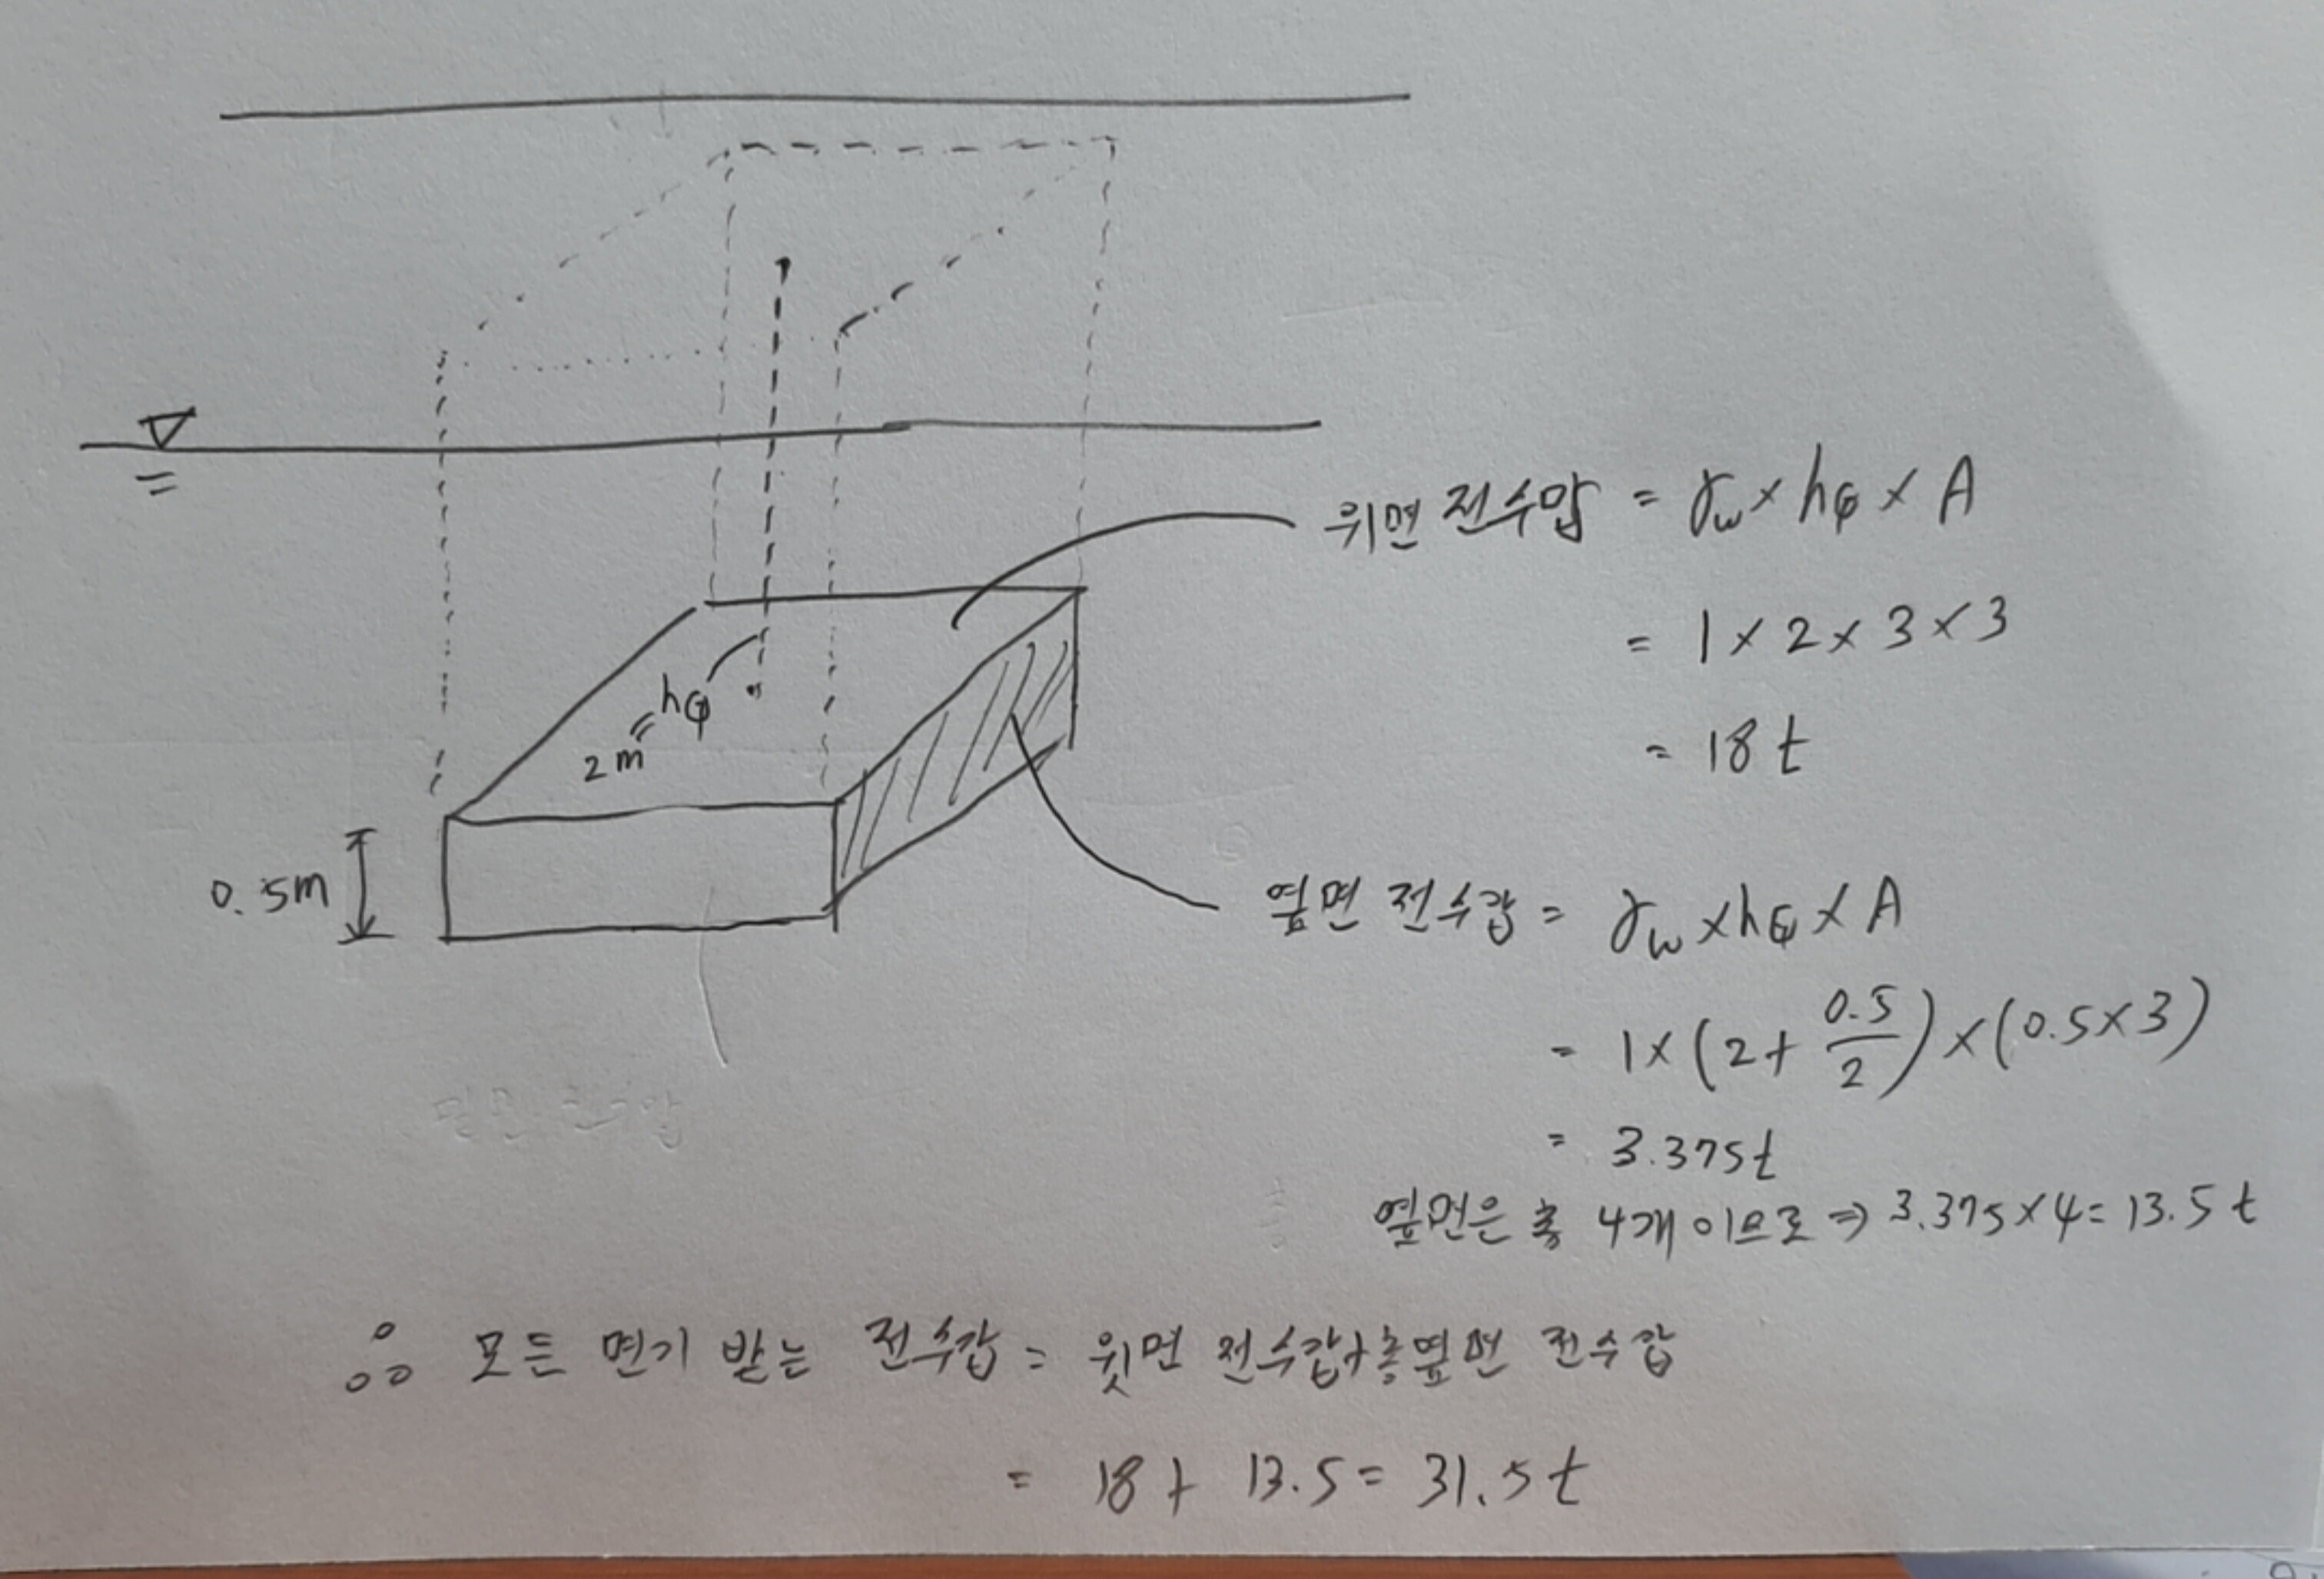 위면 전수압 = γw × hG × A
= 1 × 2 × 3 × 3
= 18 t
hG
=
2m
0.5m
옆면 전수압 = γw × hG × A
= 1 × (2 + 0.5/2) × (0.5 × 3)
= 3.375t
옆면은 총 4개 이므로 ⇒ 3.375 × 4 = 13.5 t
∴ 모든 면이 받는 전수압 = 윗면 전수압 + 총옆면 전수압
= 18 + 13.5 = 31.5 t